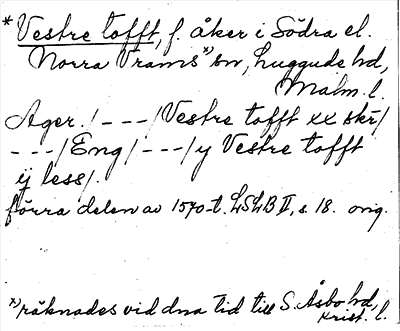 *Vestre tofft, f. åker i Södra el.
Norra Vrams *) sn, Luggude hd,
Malm. l.
Ager. /---/ Vestre tofft xx skr/
---/ Eng /---/ y Vestre tofft
ij less/.
förra delen av 1570-t. LSLB II, s. 18. orig.
*) räknades vid dna tid till S. Åsbo hd,
Krist. l.